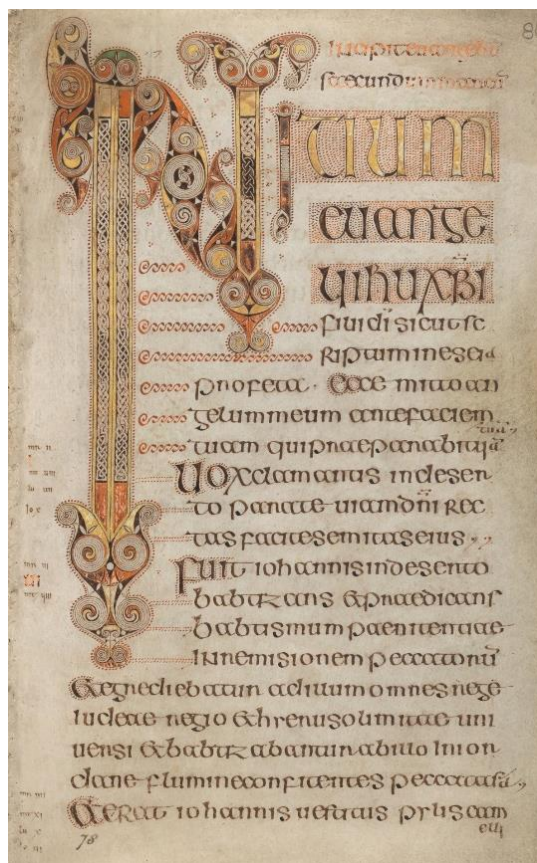 Incipit euangelium
secundum marcū
INITIUM
euange
lii ihu xpi
filii di sicut sc
riptum in esaia
profeta · Ecce mitto an
gelum meum ante faciem
tuam qui praeparabit uiā
tuā
Uox clamantis in deser
to parate uiam dni rec
tas facite semitas eius
Fuit iohannis in deserto
babtizans & praedicans
babtismum paenitentiae
in remisionem peccatorū
& egrediebatur ad illum omnes rege
iudeae regio & hierusolimitae uni
uersi & babtizabantur ab illo in ior
dane flumine confitentes peccata sua
& erat iohannis uestitus pylis cam
eli
78